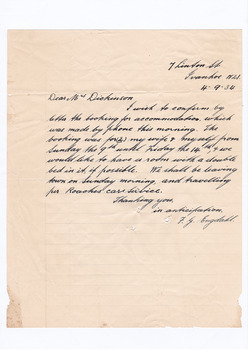 7 Linton St
Ivanhoe N21.
4-9-34
Dear Mrs Dickinson
I wish to confirm by
letter the booking for accommodation which
was made by phone this morning. The
booking was for my wife & myself from
Sunday the 9th until Friday the 14th & we
would like to have a room with a double
bed in it if possible. We shall be leaving
town on Sunday morning and travelling
per Roaches car service.
Thanking you
in anticipation.
F. G. Engdahl